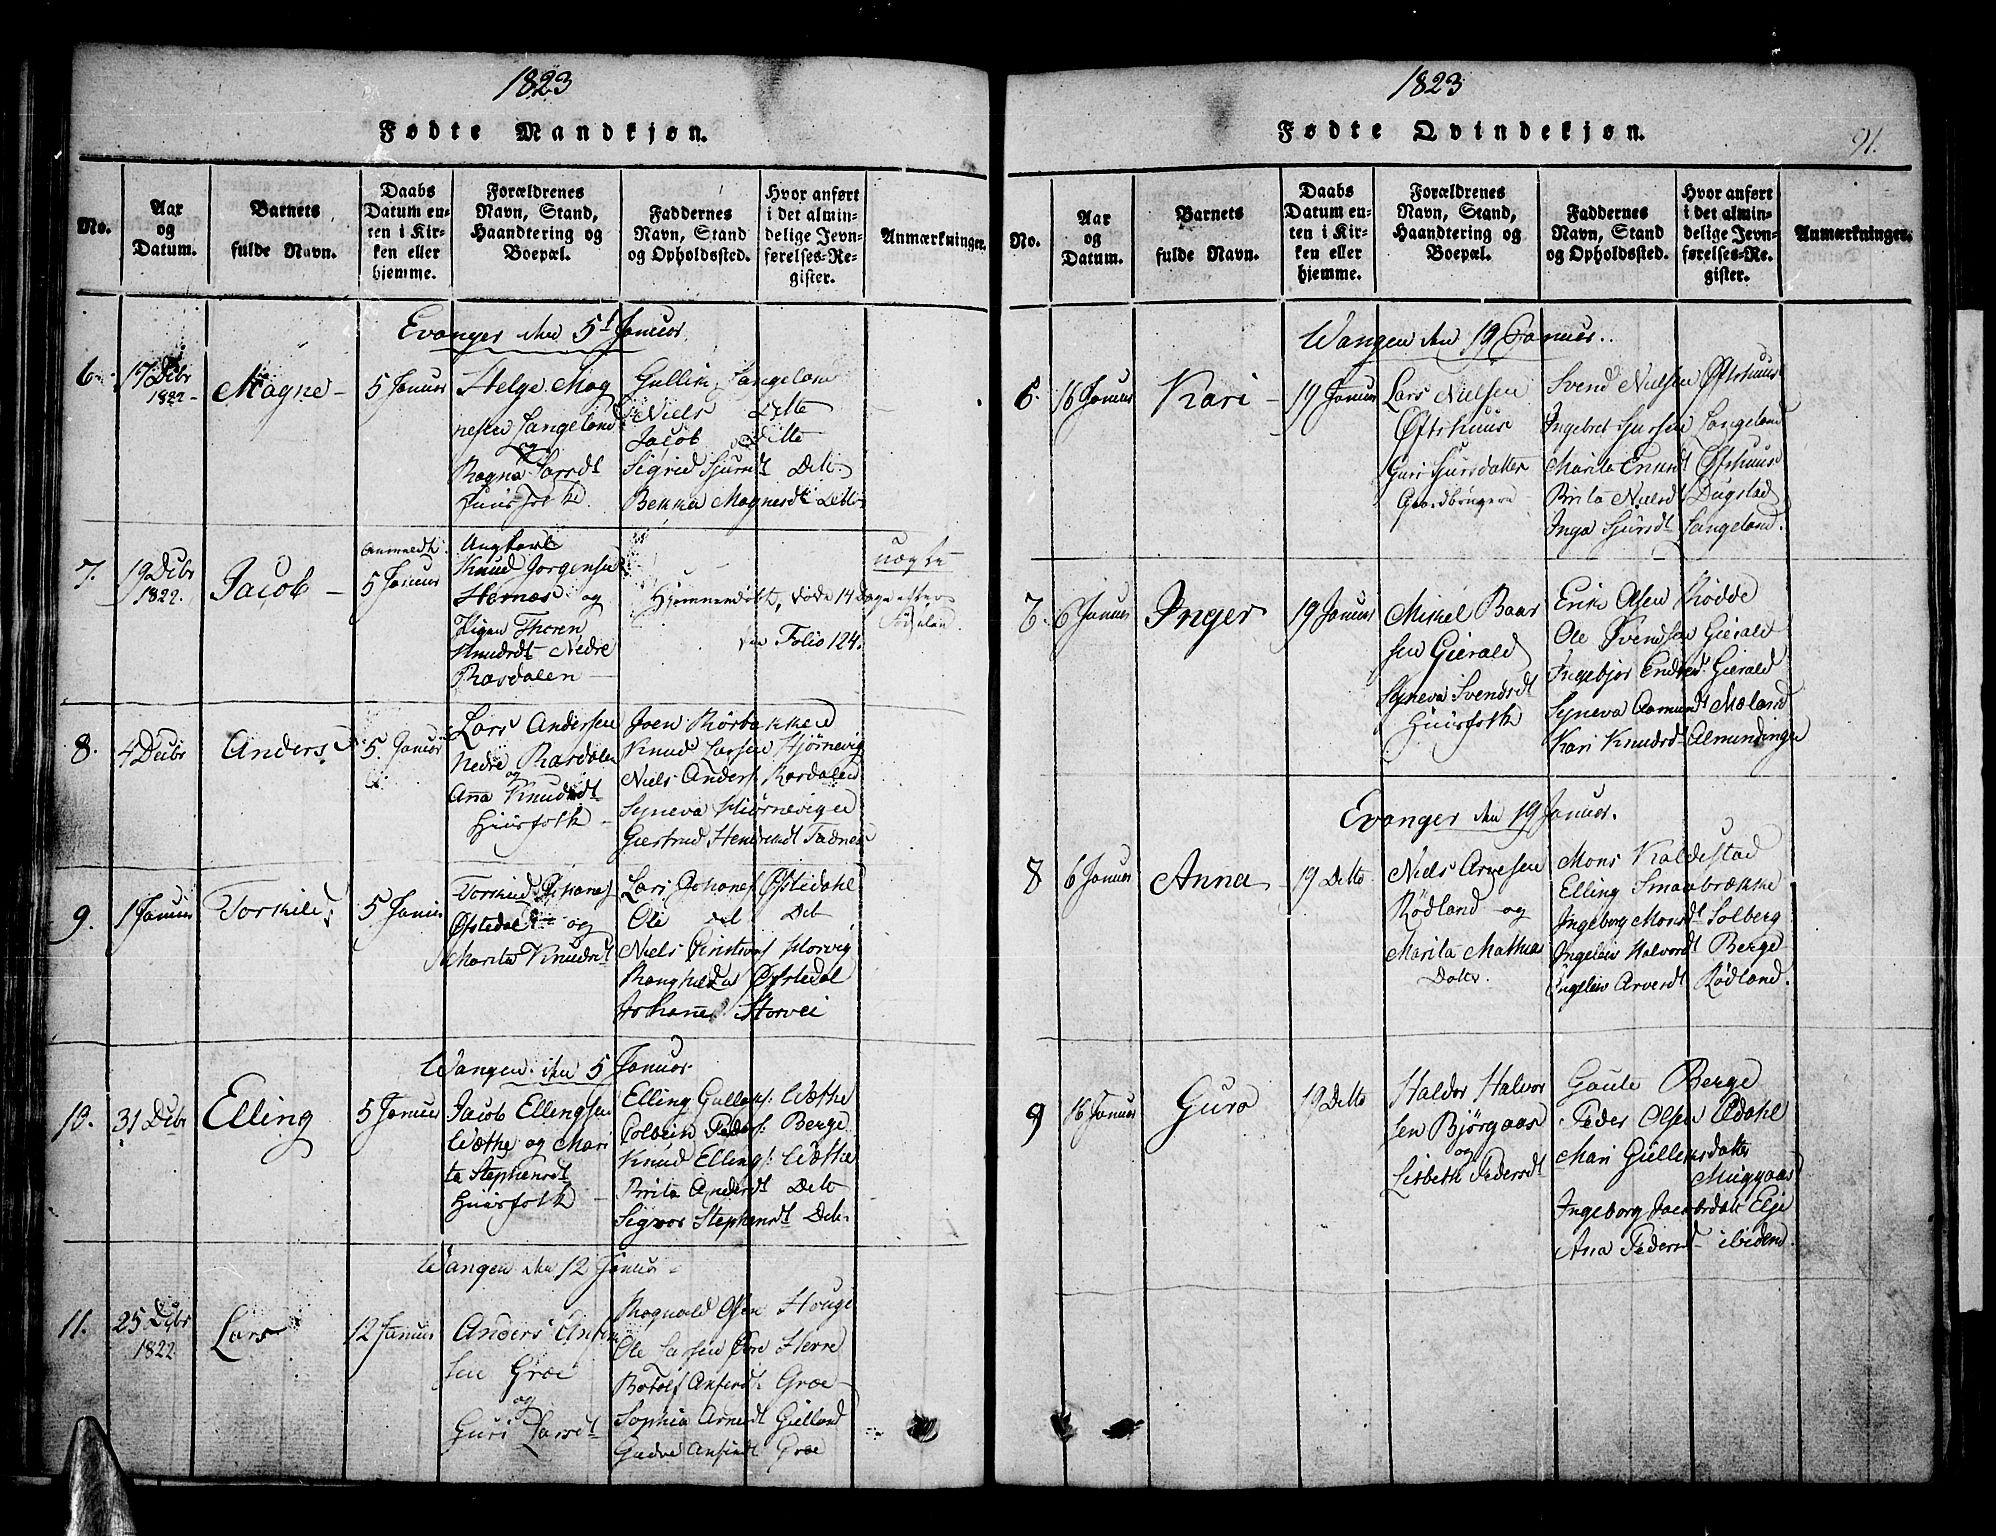 1823
Fødte Mandkjøn.
No.
Aar
og
Datum.
Barnets
fulde Navn.
Daabs
Datum en-
ten i Kir-
ken eller
hjemme.
Forældrenes
Navn, Stand,
Haandtering og
Boepæl.
Faddernes
Navn, Stand
og Opholdssted.
Hvor anført
i det almin-
delige Jevn-
førelses-Re-
gister.
Anmærkninger.
Evanger den 5t Januar
6.
17 Decbr
1822
Magne
5 Januar
Helge Mag
nesen Langeland
og
Ragna Larsdt
Huusfolke.
Gullik Langeland
Niels Ditto
Jacob Ditto
Sigrid Sjursdt Dito
Magnesdt Ditto
7.
19 Decbr
1822.
Jacob
Anmeldt
5 Januar
Ungkarl
Knud Jorgensen
Hernæs og
Pigen
Knudsdt Nedre
Rasdalen
Hjemmedøbt, døde 14 Dage efter
Fødselen
Folio 124.
uægte
8.
4 Decbr
Anders
5 Januar
Lars Andersen
Nedre Rasdalen
og
Anna Knudsdt
Huusfolk
Joen Rörbakken
Knud Larsen Hjørnevig
Niels Anders. Rasdalen
Syneva Hiørnevigen
Giertrud Fadnes
9.
1 Januar
Torkild
5 Januar
Torkild Johanes
Østedal og
Marita Knudsdt
Lars Johanes Østedahl
Ole Dito
Niels Horvig
Ranghilda Østedal
Johannes Horvei
Wangen den 5 Januar
10.
31 Decbr
Elling
5 Januar
Jacob Ellingsen
Wæthe og Mari
ta Stephensdt
Huusfolk
Elling Gulleks. Wæthe
Colbein Peders. Berge
Knud Ellings. Wæthe
Brita Andersdt Dito
Sigvor Stephensdt Dito
Wangen den 12 Januar
11.
25 Decbr
1822
Lars
12 Januar
Anders Anfin
sen Græe
og
Guri Larsdt
Rognald Olsen Houge
Ole Larsen Øvre Herre
Botolf Anfindt Græe
Sophia Arnesdt Gielland
Anfindt Græe
1823
91.
Fødte Qvindekjøn.
No.
Aar
og
Datum.
Barnets
fulde Navn.
Daabs
Datum en-
ten i Kir-
ken eller
hjemme.
Forældrenes
Navn, Stand,
Haandtering og
Boepæl.
Faddernes
Navn, Stand
og Opholdssted.
Hvor anført
i det almin-
delige Jevn-
førelses-Re-
gister.
Anmærkninger.
Wangen den 19 Januar.
6.
16 Januar
Kari
19 Januar
Lars Nielsen
Øfshuus
Guri Sjursdatter
Gaardbrugere
Svend Nielsen Øfshuus
Ingebret Sjursen Langeland
Marita Øfshuus
Brita Nielsdt Dugstad
Inga Sjursdt Langeland.
7.
6 Januar
Inger
19 Januar
Mikel Baar
sen Gierald
Syneva Svendsdt
Huusfolk
Erik Olsen Rødde
Ole Svendsen Gierald
Ingebjør Endresd. Gierald
Syneva Aamundt Mæland
Kari Knudsd. Almundinge
Evanger den 19 Januar.
8
6 Januar
Anna
19 Ditto
Niels Arvesen
Rödland og
Marita Mathias
Dater.
Mons Kaldestad
Elling Smaabrække
Ingeborg Monsdt Solberg
Ingeleiv Halvordt Berge
Ingeleiv Arvesdt Rødland.
9
16 Januar
Guro
19 Ditto
Haldor Halvor
sen Björgaas
og
Lisbeth Pedersdt
Gaute Berge
Peder Olsen Eldahl
Mari Gulleiksdatter
Muggaas
Ingeborg Jacobsdatr Eije
Ana Pedersdt ibidend.